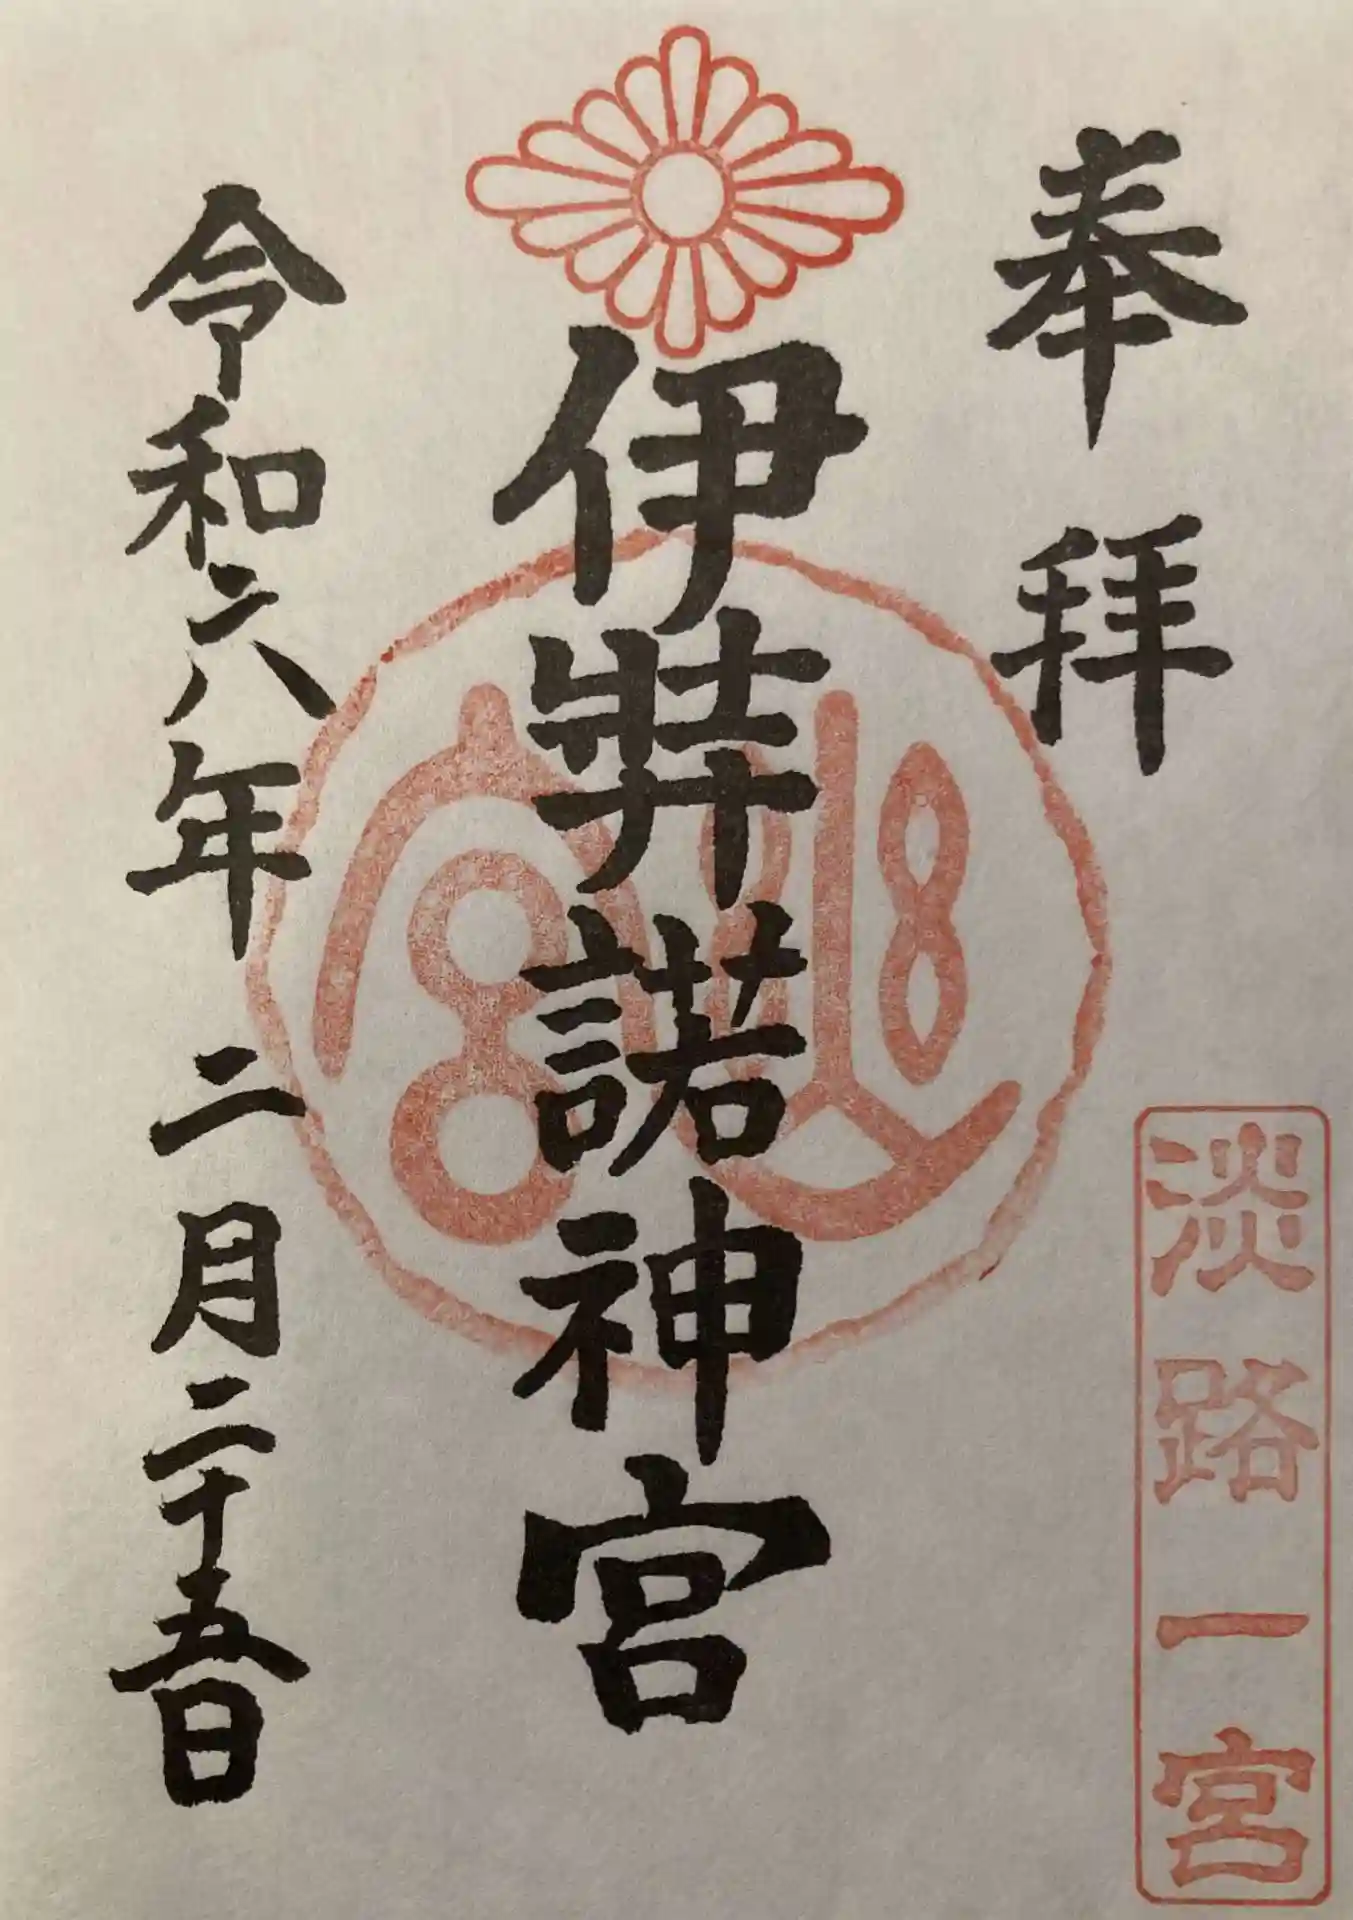 奉拝
淡路一宮
伊弉諾神宮
令和六年二月二十五日